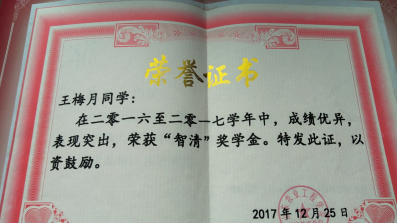 荣誉证书
王梅月同学：
在二零一六至二零一七学年中，成绩优异，
表现突出，荣获“智清”奖学金。特发此证，以
资鼓励。
2017 年 12 月 25 日